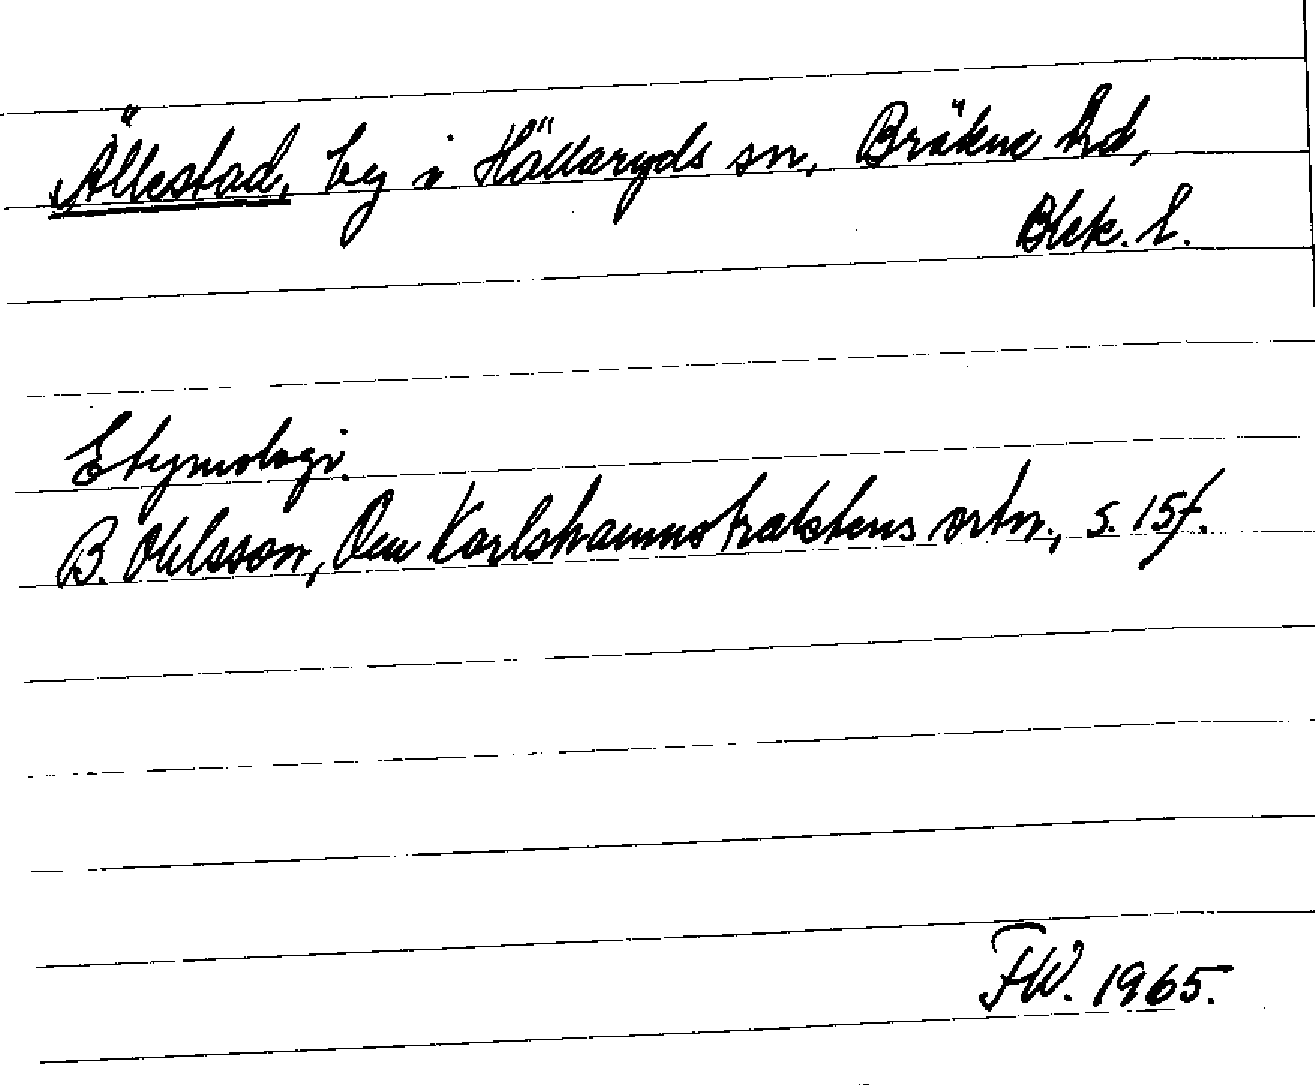 Ällestad, by i Hällaryds sn, Bräkne hd,
Blek. l.
Etymologi.
B. Ohlsson, Om Karlshamnstraktens ortn., s. 15f.
FW. 1965.